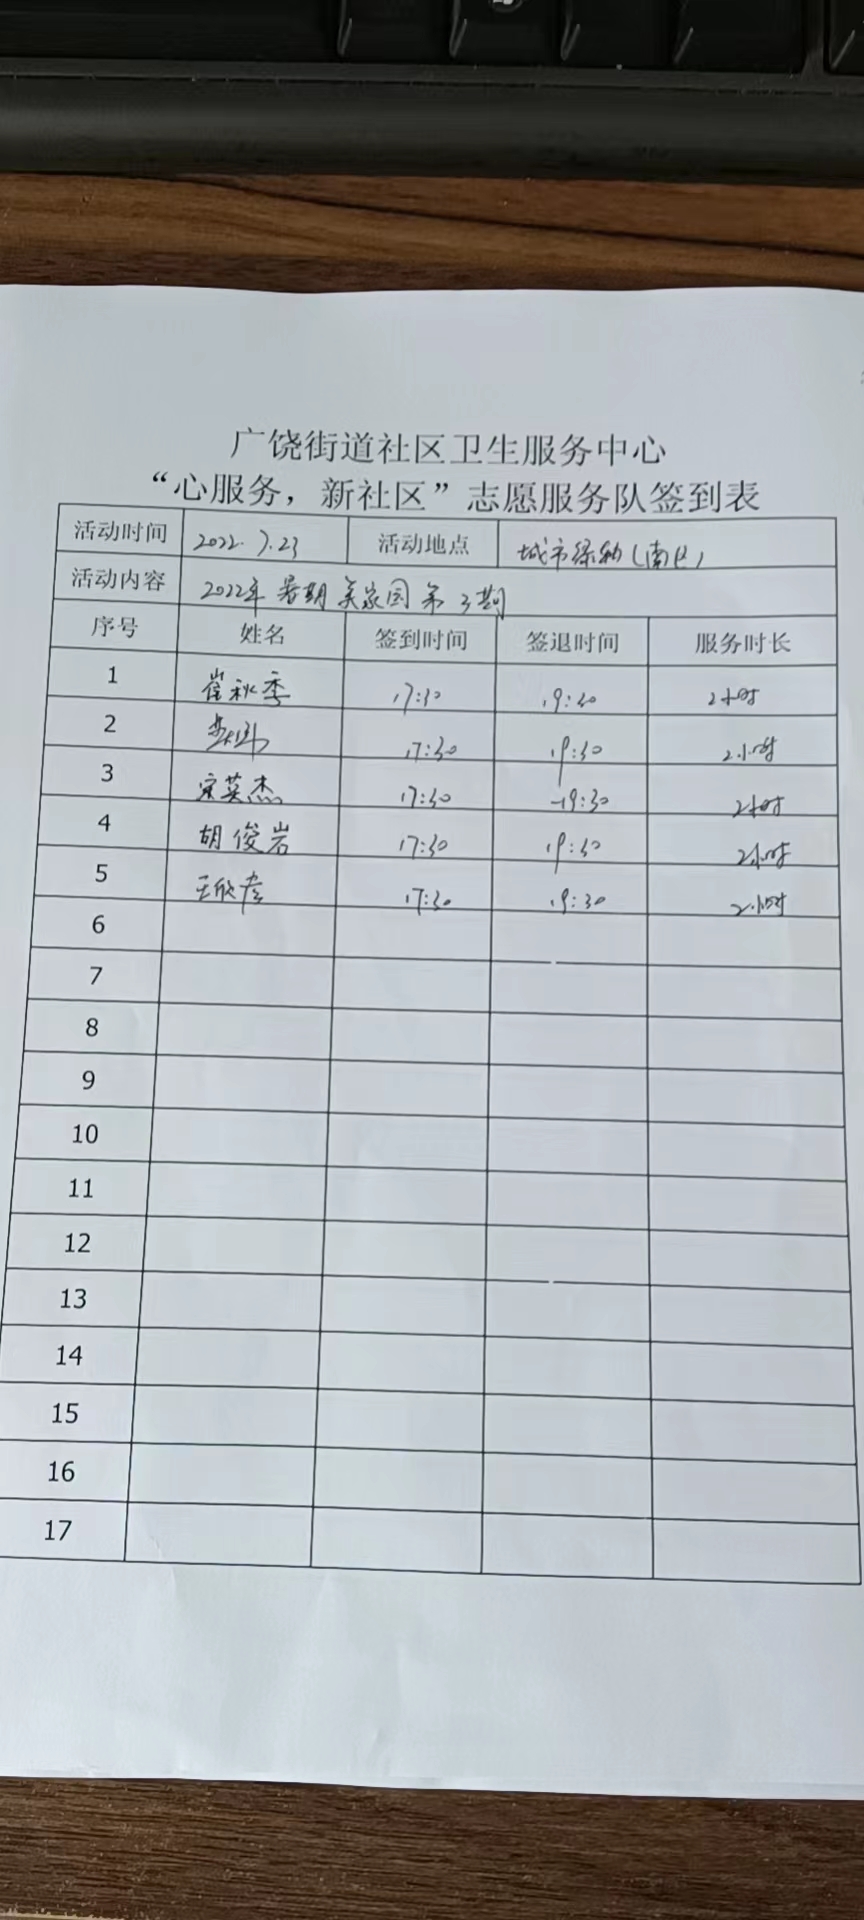 广饶街道社区卫生服务中心
“心服务，新社区”志愿服务队签到表
活动时间 2022.7.23 活动地点 城市绿洲（南区）
活动内容 2022年暑期 家园第3期
序号 姓名 签到时间 签退时间 服务时长
1 崔秋季 17:30 19:30 2小时
2 17:30 19:30 2小时
3 宋英杰 17:30 19:30 2小时
4 胡俊岩 17:30 19:30 2小时
5 王欣彦 17:30 19:30 2小时
6
7
8
9
10
11
12
13
14
15
16
17